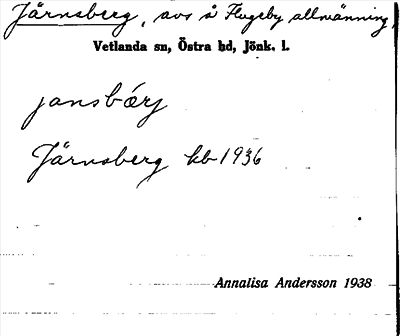 Järnsberg, avs å Flugeby allmänning,
Vetlanda sn, Östra hd, Jönk. l.
jansbärj
Järnsberg kb 1936
Annalisa Andersson 1938